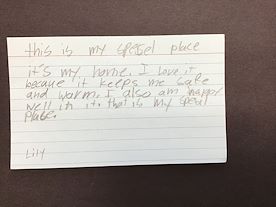 this is my spegel place
it's my home. I love it
becaue it keeps me safe
and warm. I also am happy
well in it. that is my speal
place.
Lily